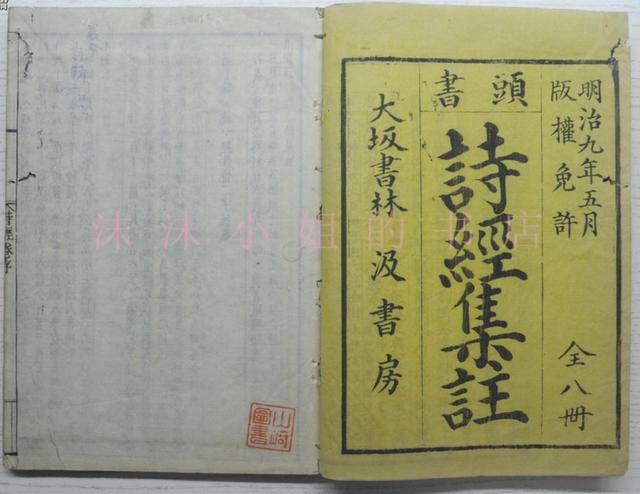 明治九年五月
版權免許
全八冊
頭書
詩經集註
大坂書林
汲書房
沫沫小姐的书店
山﨑
圖書